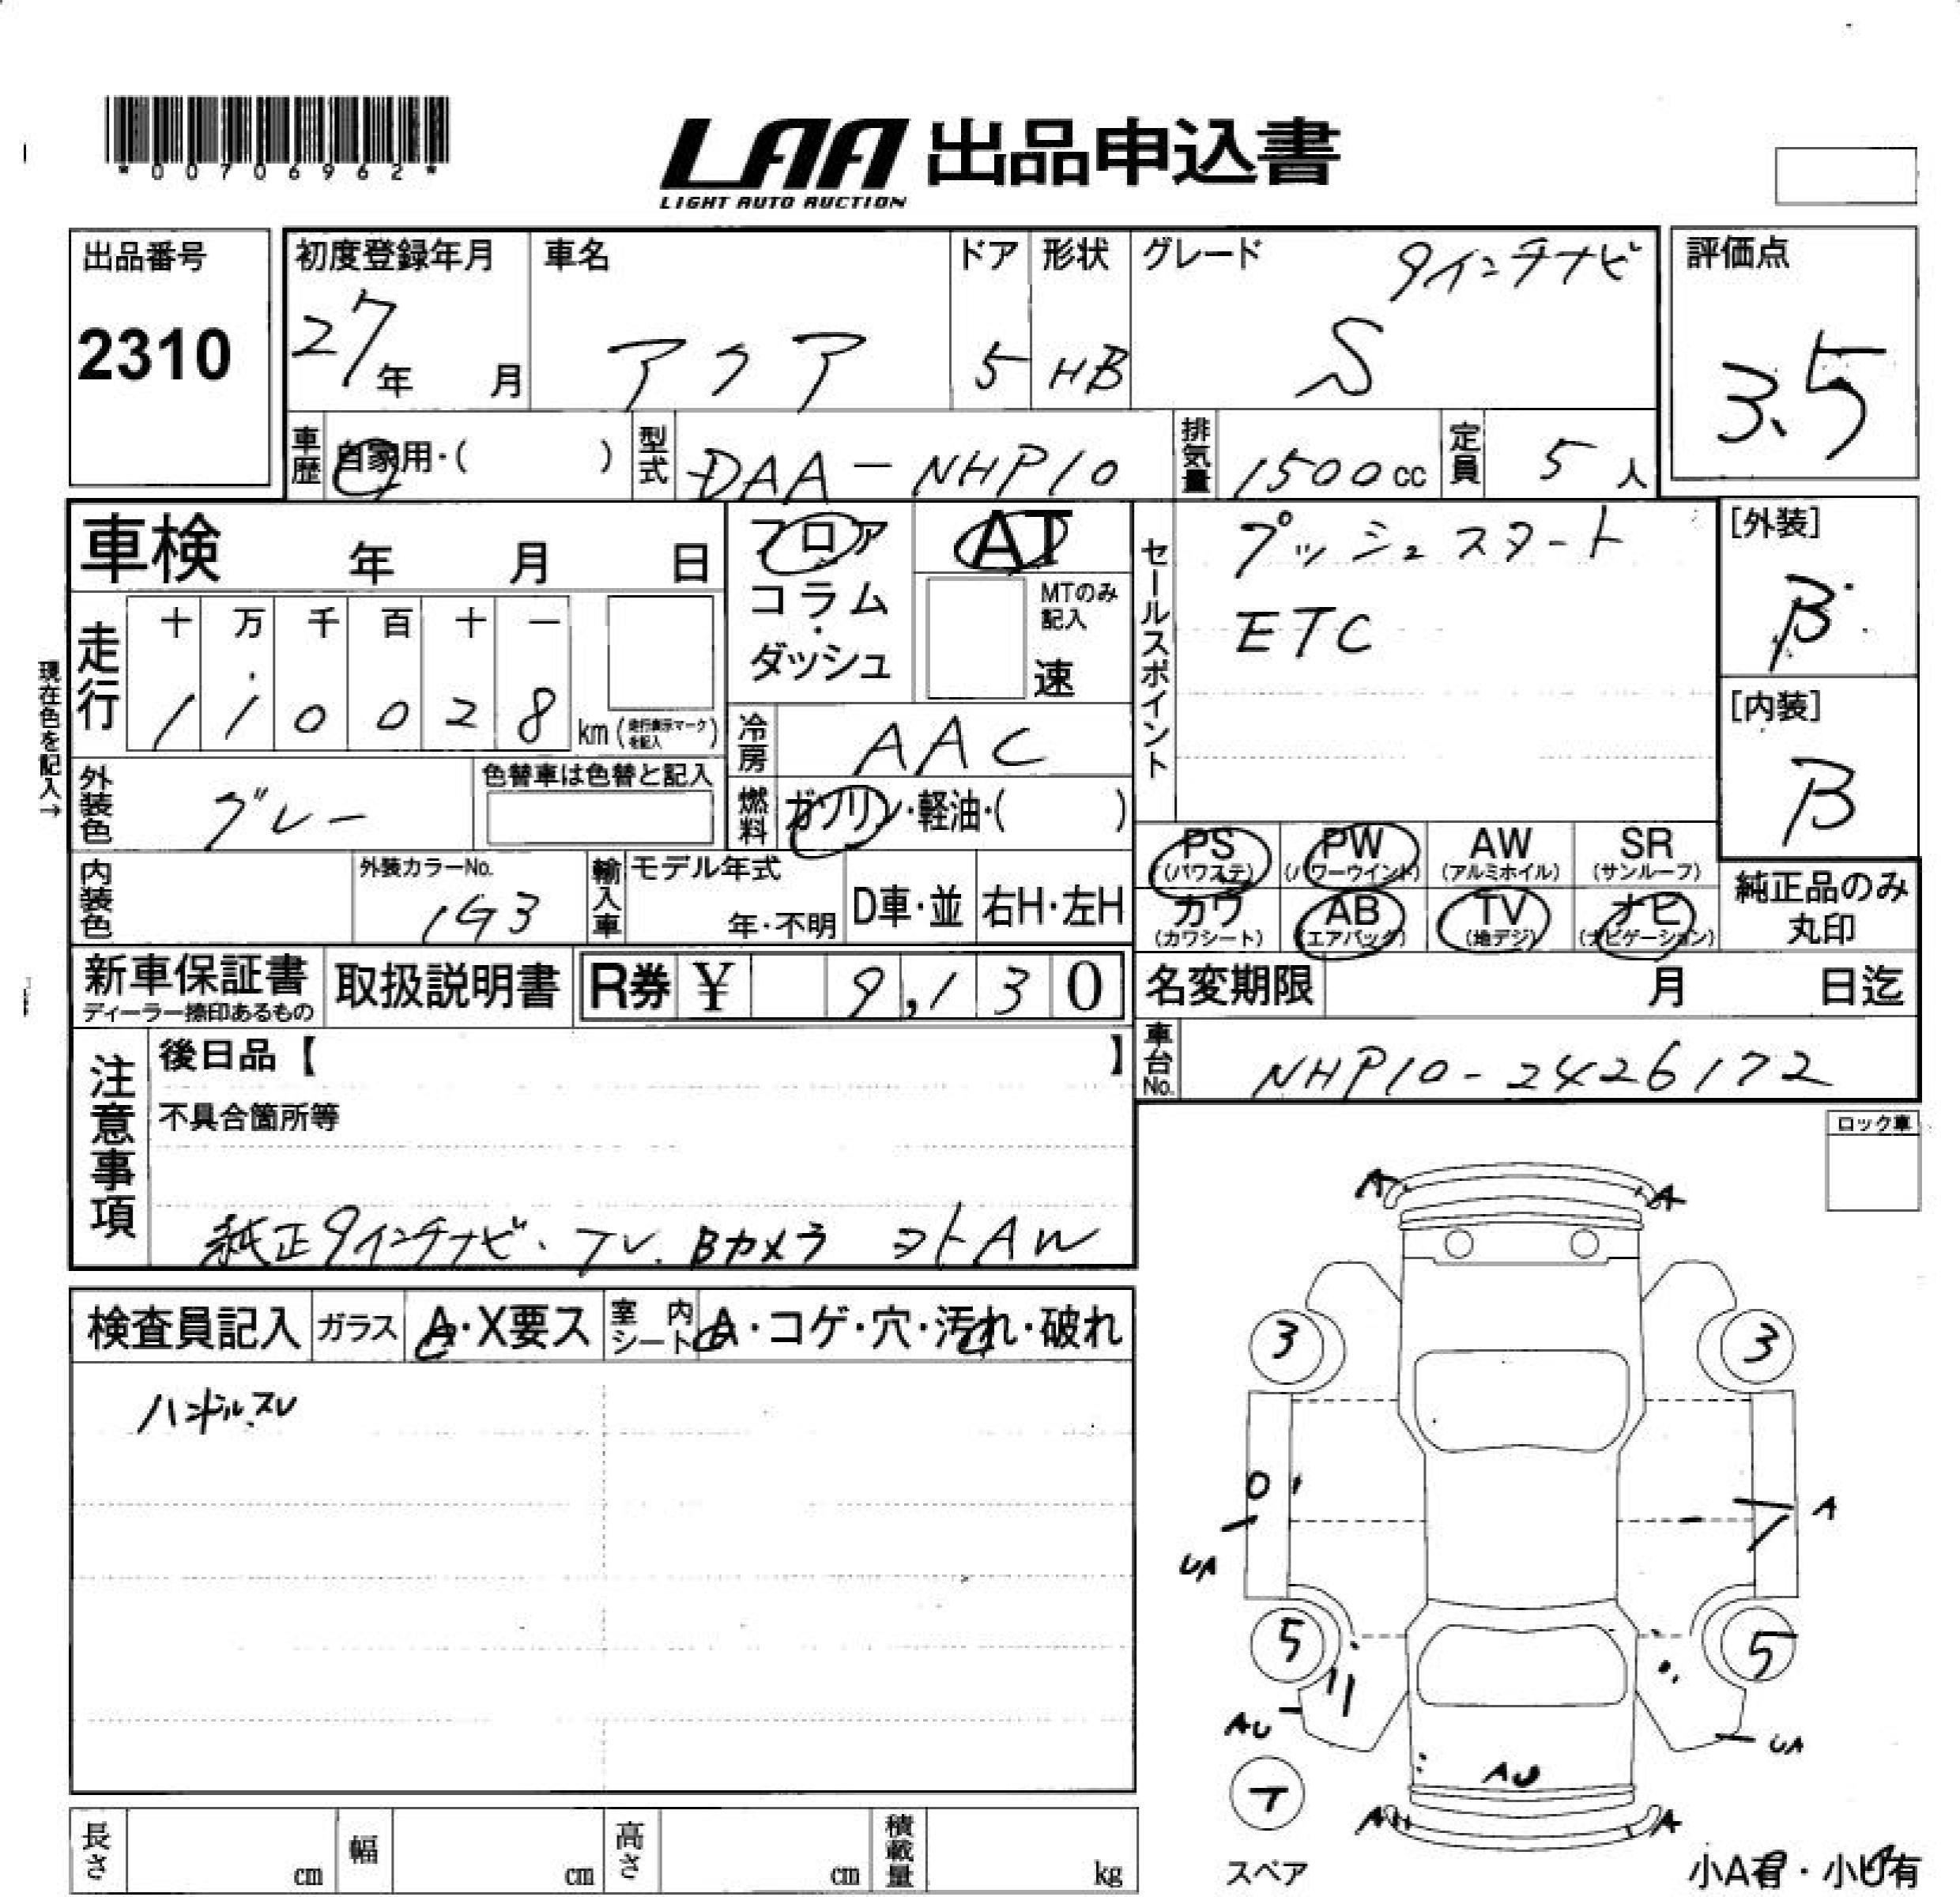 *00706962*
LAA 出品申込書
LIGHT AUTO AUCTION
出品番号
2310
初度登録年月
27年 月
車名
アクア
ドア
5
形状
HB
グレード
9インチナビ
S
評価点
3.5
車歴
自家用・( )
型式
DAA-NHP10
排気量
1500cc
定員
5人
車検 年 月 日
フロア
コラム
・
ダッシュ
AT
MTのみ
記入
速
セールスポイント
プッシュスタート
ETC
[外装]
B
[内装]
B
現在色を記入→
走行
十 万 千 百 十 一
1 1 0 0 2 8 km (走行表示マークを記入)
冷房
AAC
外装色
グレー
色替車は色替と記入
燃料
ガソリン・軽油・( )
内装色
外装カラーNo.
1G3
輸入車
モデル年式
年・不明
D車・並
右H・左H
PS
(パワステ)
PW
(パワーウインド)
AW
(アルミホイル)
SR
(サンルーフ)
カワ
(カワシート)
AB
(エアバック)
TV
(地デジ)
ナビ
(ナビゲーション)
純正品のみ
丸印
新車保証書
ディーラー捺印あるもの
取扱説明書
R券 ¥ 9,130
名変期限 月 日迄
車台No.
NHP10-2426172
注意事項
後日品【 】
不具合箇所等
純正9インチナビ・TV.Bカメラ 
AW
ロック車
検査員記入
ガラス
A・X要ス
室内シート
A・コゲ・穴・汚れ・破れ
ハンドルスレ
A A
3 3
0
A
UA
5 5
AU UA
AU
A A
スペア
小A有・小U有
長さ cm
幅 cm
高さ cm
積載量 kg